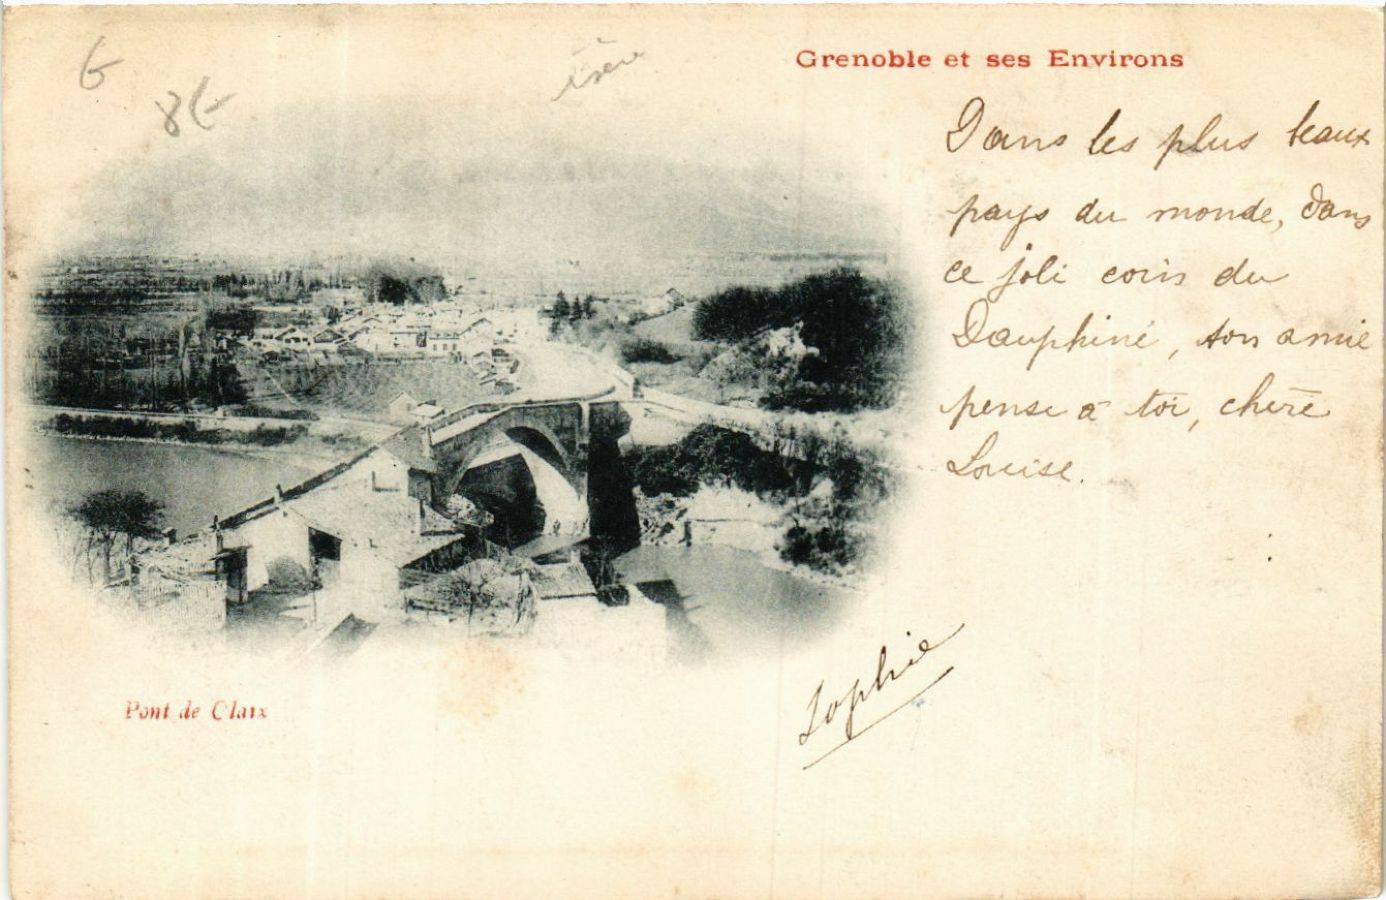 G
8€
Isère
Grenoble et ses Environs
Dans les plus beaux
pays du monde, dans
ce joli coin du
Dauphiné, ton amie
pense à toi, chère
Louise.
Sophie
Pont de Claix